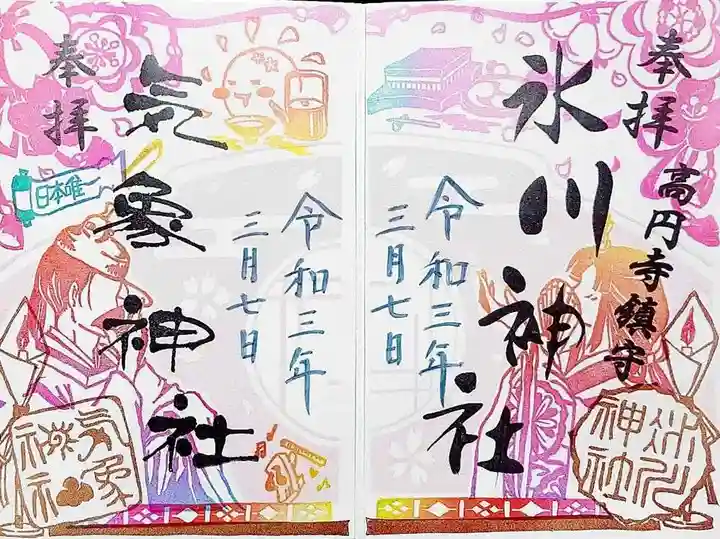 奉拝
高円寺鎮守
氷川神社
令和三年
三月七日
氷川神社
奉拝
気象神社
令和三年
三月七日
日本唯一
気象神社